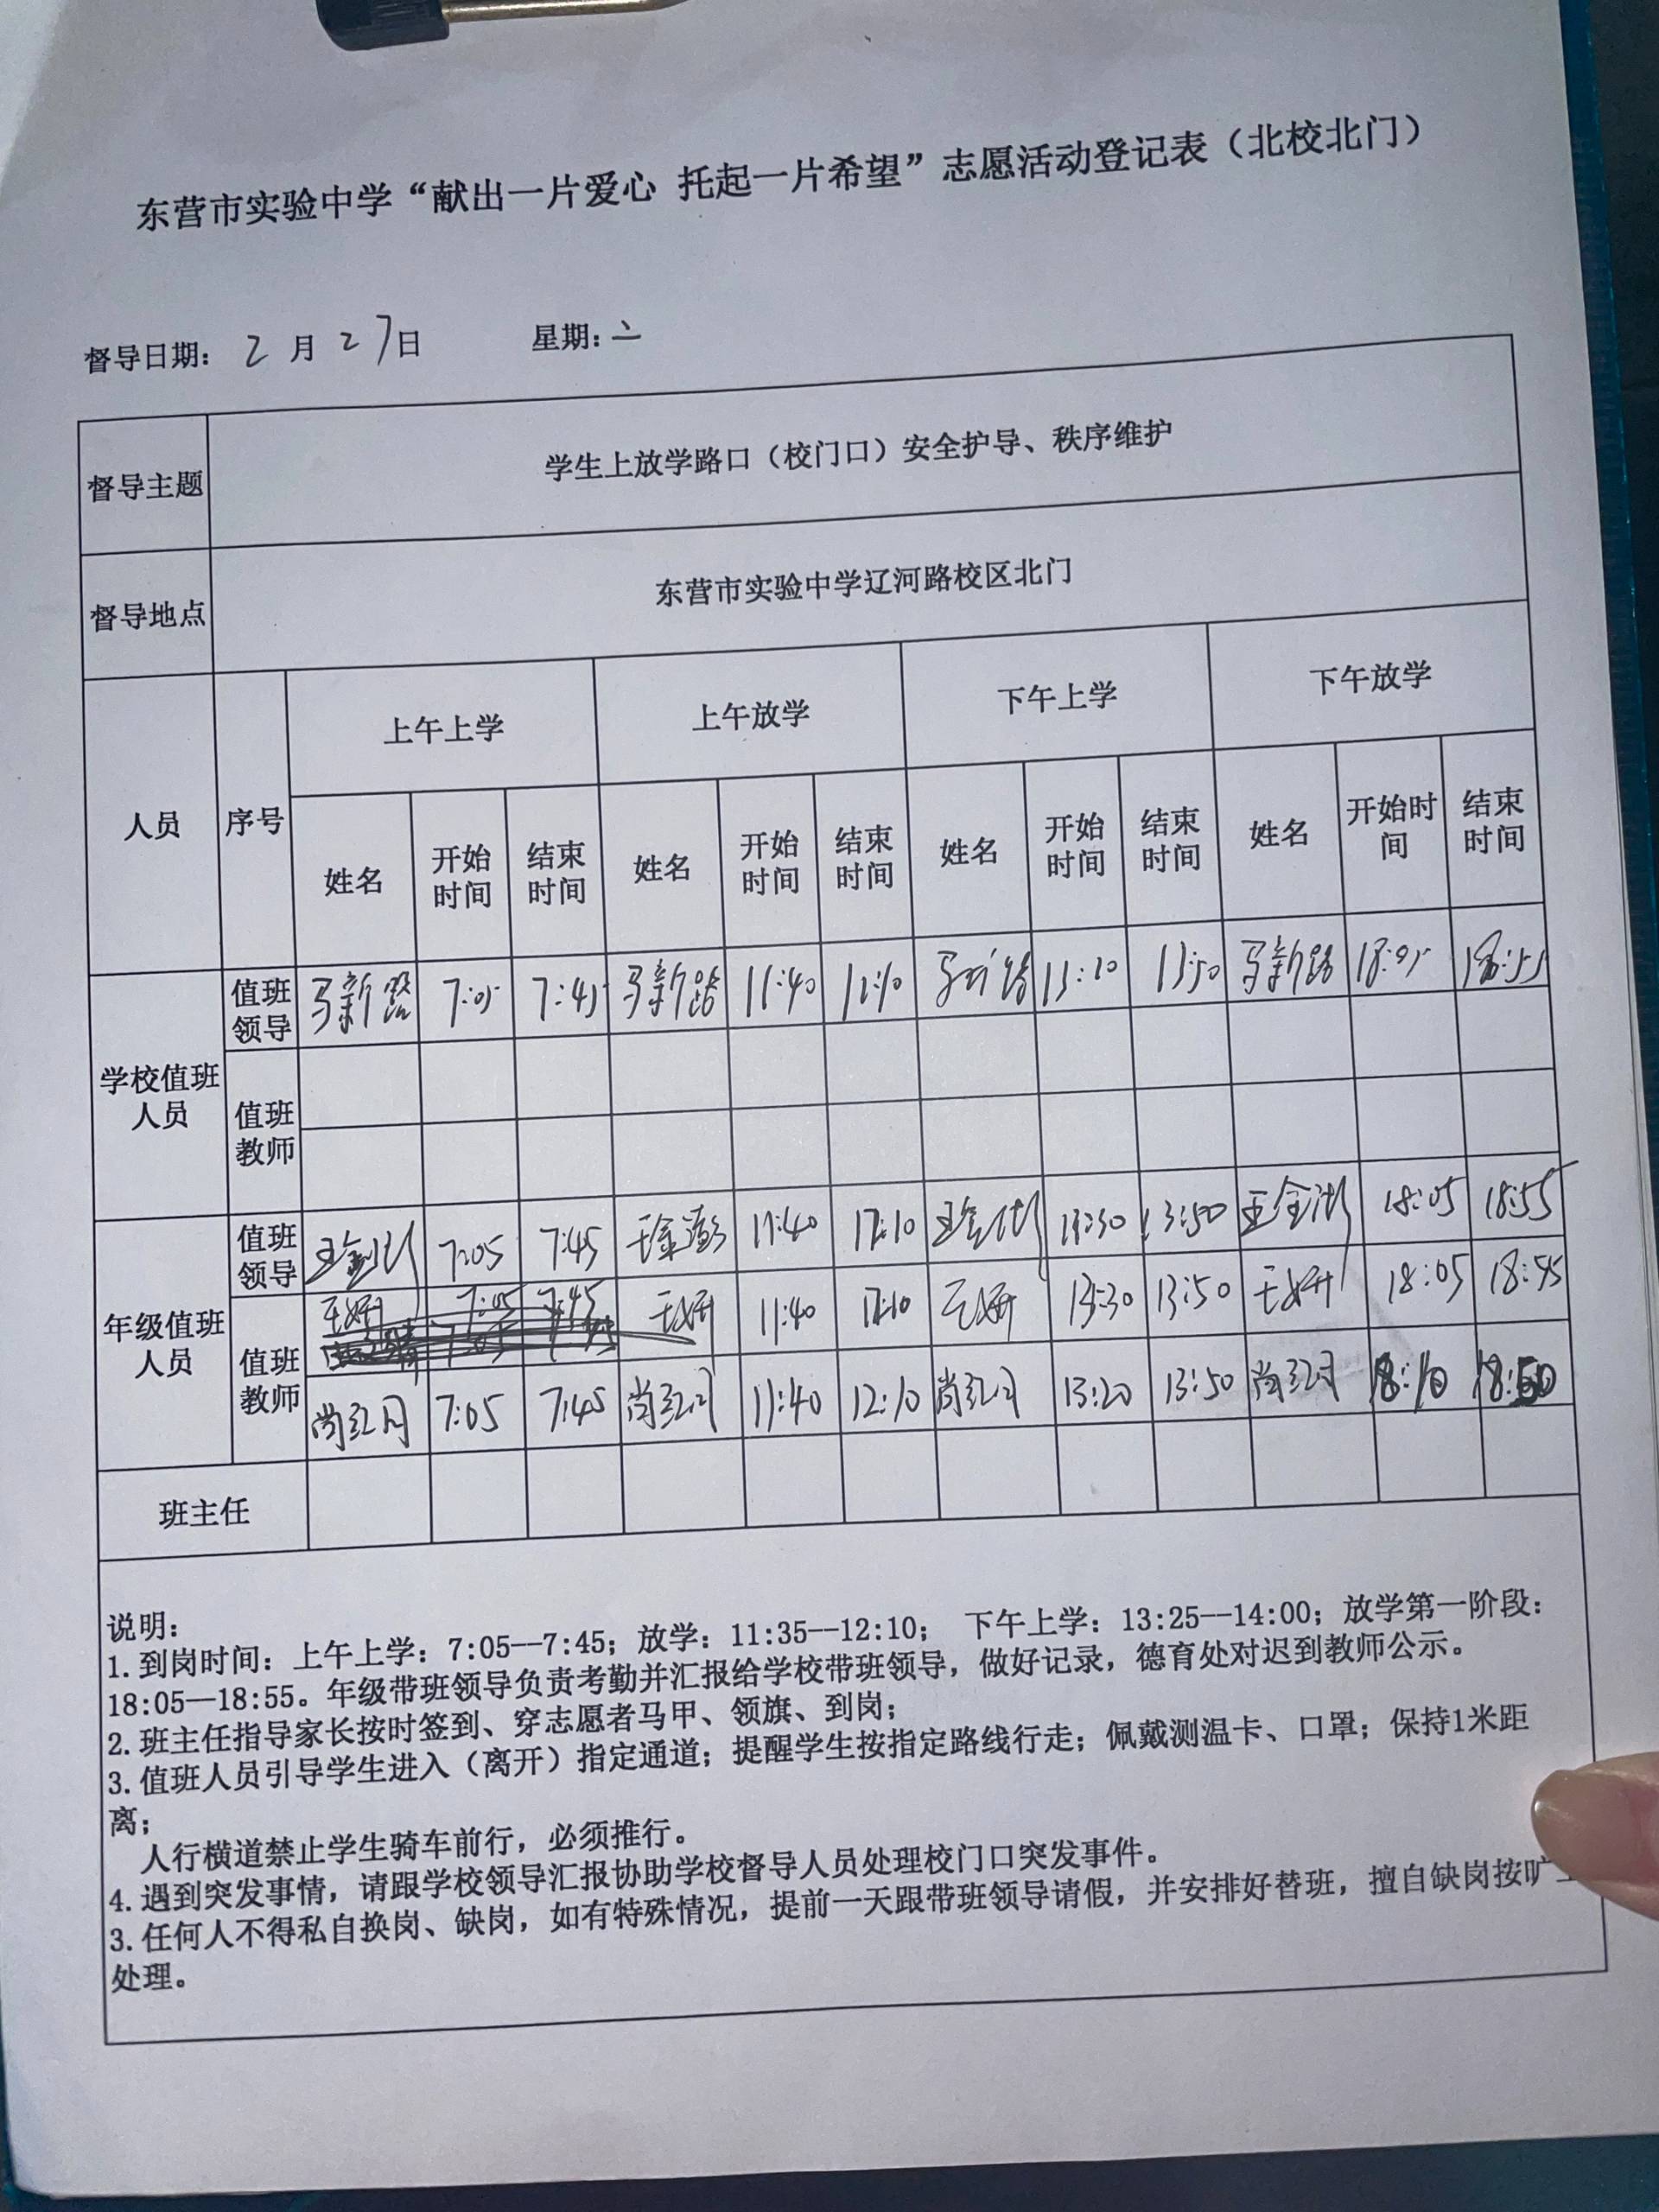 东营市实验中学“献出一片爱心 托起一片希望”志愿活动登记表（北校北门）
督导日期： 2 月 27日 星期：二
督导主题 学生上放学路口（校门口）安全护导、秩序维护
督导地点 东营市实验中学辽河路校区北门
人员 序号 上午上学 上午放学 下午上学 下午放学
姓名 开始时间 结束时间 姓名 开始时间 结束时间 姓名 开始时间 结束时间 姓名 开始时间 结束时间
学校值班人员 值班领导 马新路 7:05 7:45 马新路 11:40 12:10 马新路 13:50 马新路 18:05 18:55
值班教师
年级值班人员 值班领导 7:05 7:45 11:40 12:10 13:30 13:50 18:05 18:55
值班教师 王妍 7:05 7:45 王妍 11:40 12:10 王妍 13:30 13:50 王妍 18:05 18:55
尚红月 7:05 7:45 尚红月 11:40 12:10 尚红月 13:20 13:50 尚红月 18:10 18:50
班主任
说明：
1.到岗时间：上午上学：7:05--7:45；放学：11:35--12:10； 下午上学：13:25--14:00；放学第一阶段：
18:05—18:55。年级带班领导负责考勤并汇报给学校带班领导，做好记录，德育处对迟到教师公示。
2.班主任指导家长按时签到、穿志愿者马甲、领旗、到岗；
3.值班人员引导学生进入（离开）指定通道；提醒学生按指定路线行走；佩戴测温卡、口罩；保持1米距
离；
人行横道禁止学生骑车前行，必须推行。
4.遇到突发事情，请跟学校领导汇报协助学校督导人员处理校门口突发事件。
3.任何人不得私自换岗、缺岗，如有特殊情况，提前一天跟带班领导请假，并安排好替班，擅自缺岗按旷工
处理。